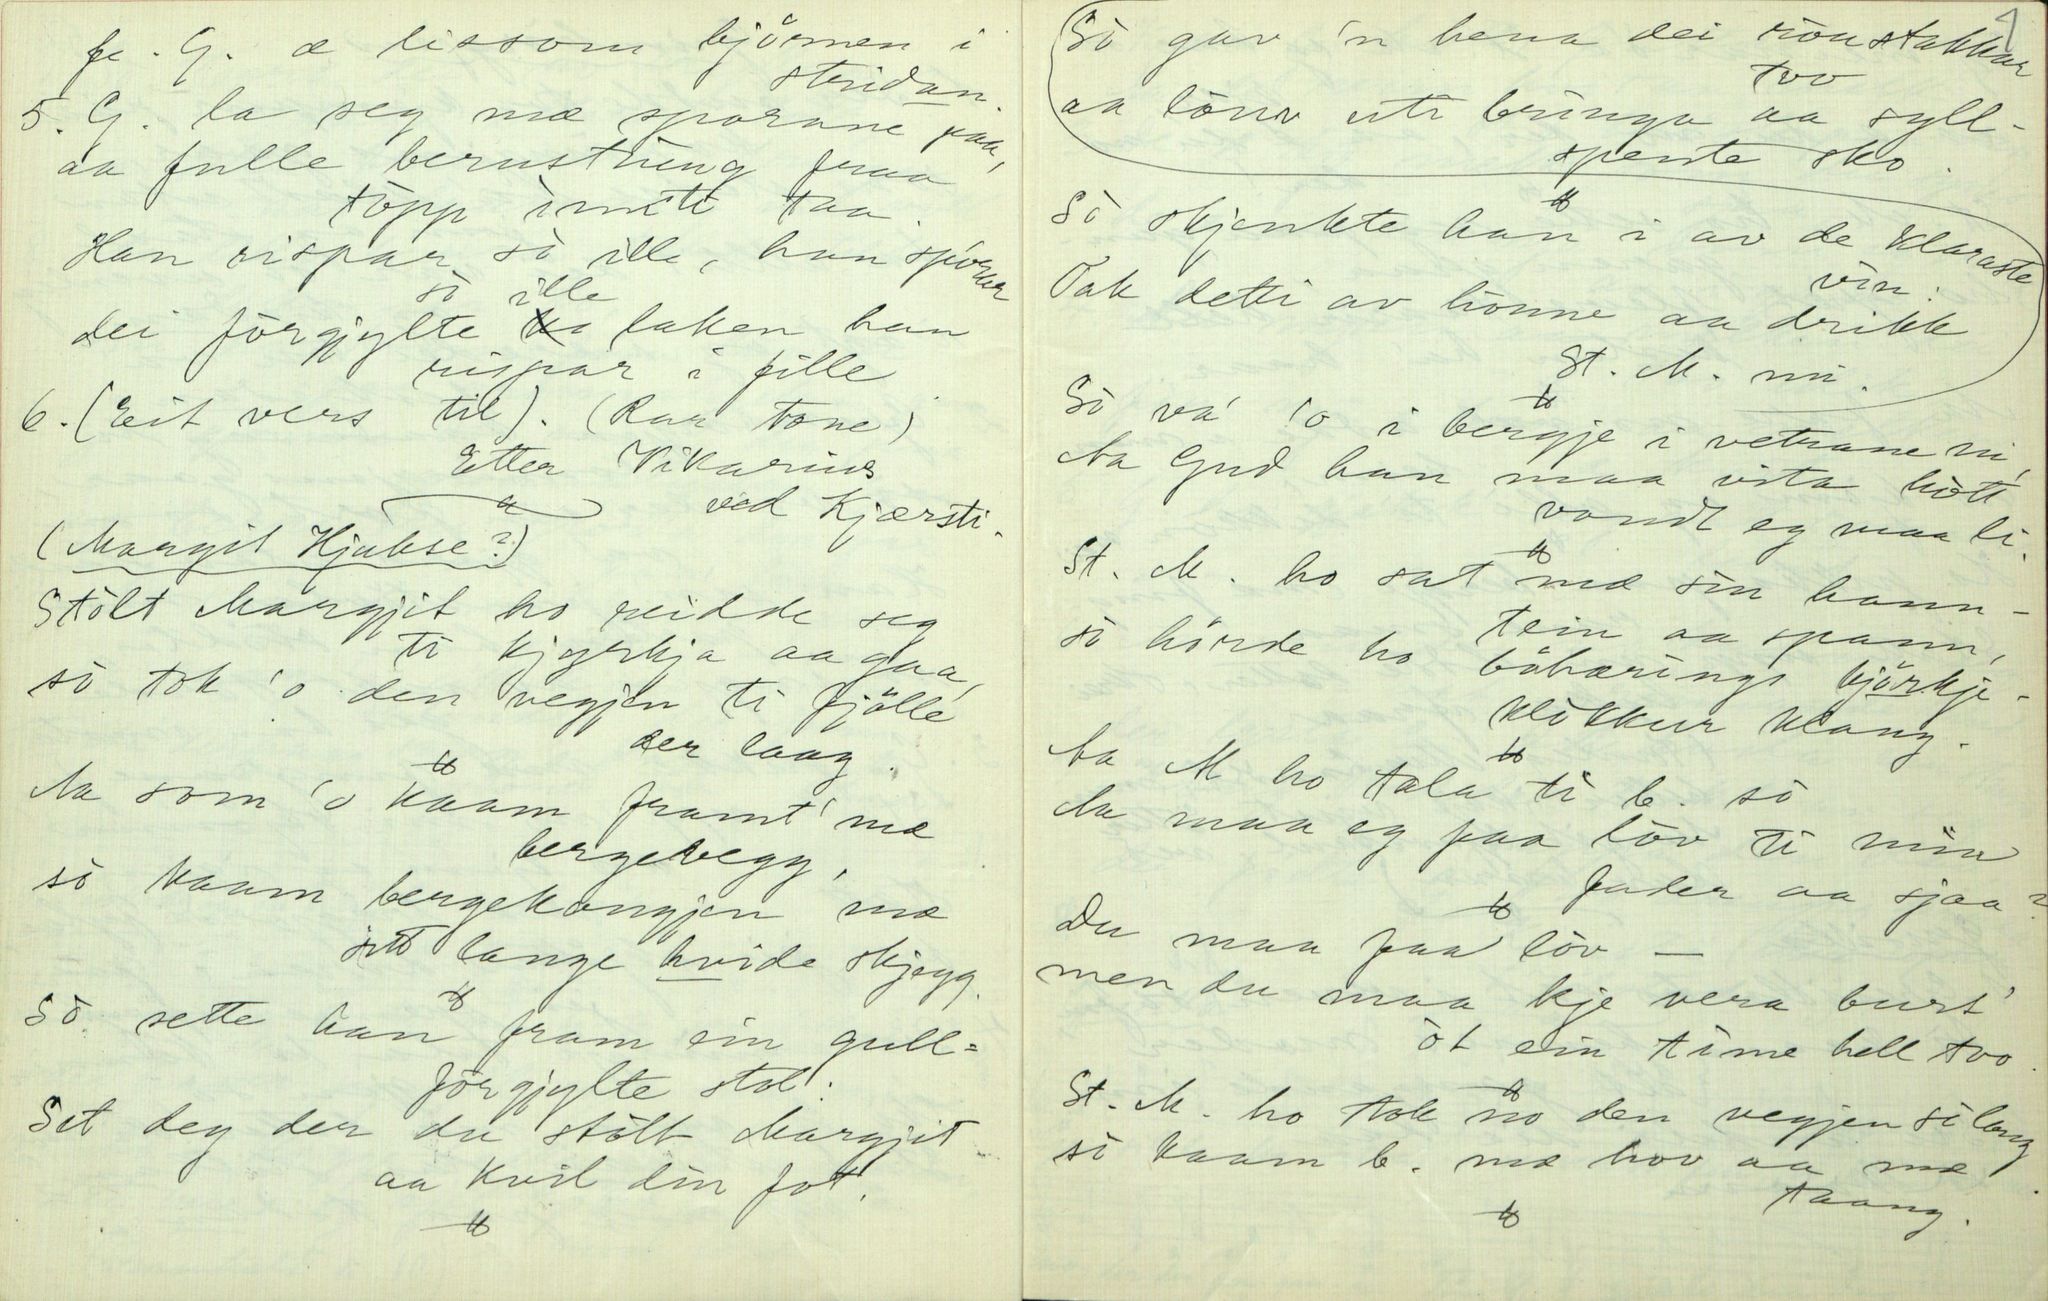 fe. G. æ lissom bjönnen i
stridan.
5. G. la seg mæ sporane paa,
aa fulle berustning fraa
töpp immti taa.
Han rispar så ille, han spòrar
så ille
dei förgjylte laken han
rispar i fille
6. (Eit vers til). (Rar tone)
Etter Vikarius
ved Kjærsti.
(Margit Hjukse?)
Stòlt Margjit ho reidde seg
ti kjyrkja aa gaa,
sò tok 'o den vegjen ti fjölle
der laag.
Aa som 'o kaam framt' mæ
bergevegg,
sò kaam bergekongjen mæ
sitt lange hvide skjegg.
Sò sette han fram ein gull=
förgjylte stol.
Set deg der du stòlt Margjit
aa kvil din fot.
1
Sò gav 'n hena dei röustakkar
tvo
aa lönv uti bringa aa syll-
spente sko.
Sò skjenkte han i av de klaraste
vin.
Tak detti av honne aa drikk
St. M. mi.
Sò va' 'o i bergje i vetrane ni,
Aa Gud han maa vita hòtt
vondt eg maa li.
St. M. ho sat mæ sin hann-
tein aa spann,
sò hörde ho böhærings kjörkje-
klòkkur klang.
Aa M ho tala ti b. sò
Aa maa eg faa löv ti min
fader aa sjaa?
Du maa faa löv —
men du maa kje vera burt'
òt ein time hell tvo.
St. M. ho tok no den vegjen sò lang
sò kaam b. mæ hov aa mæ
taang.